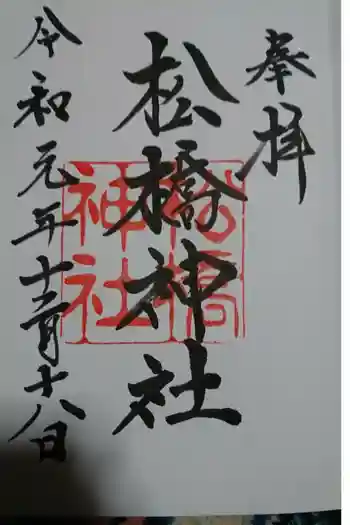 奉拝
松橋神社
松橋神社
令和元年十二月十八日